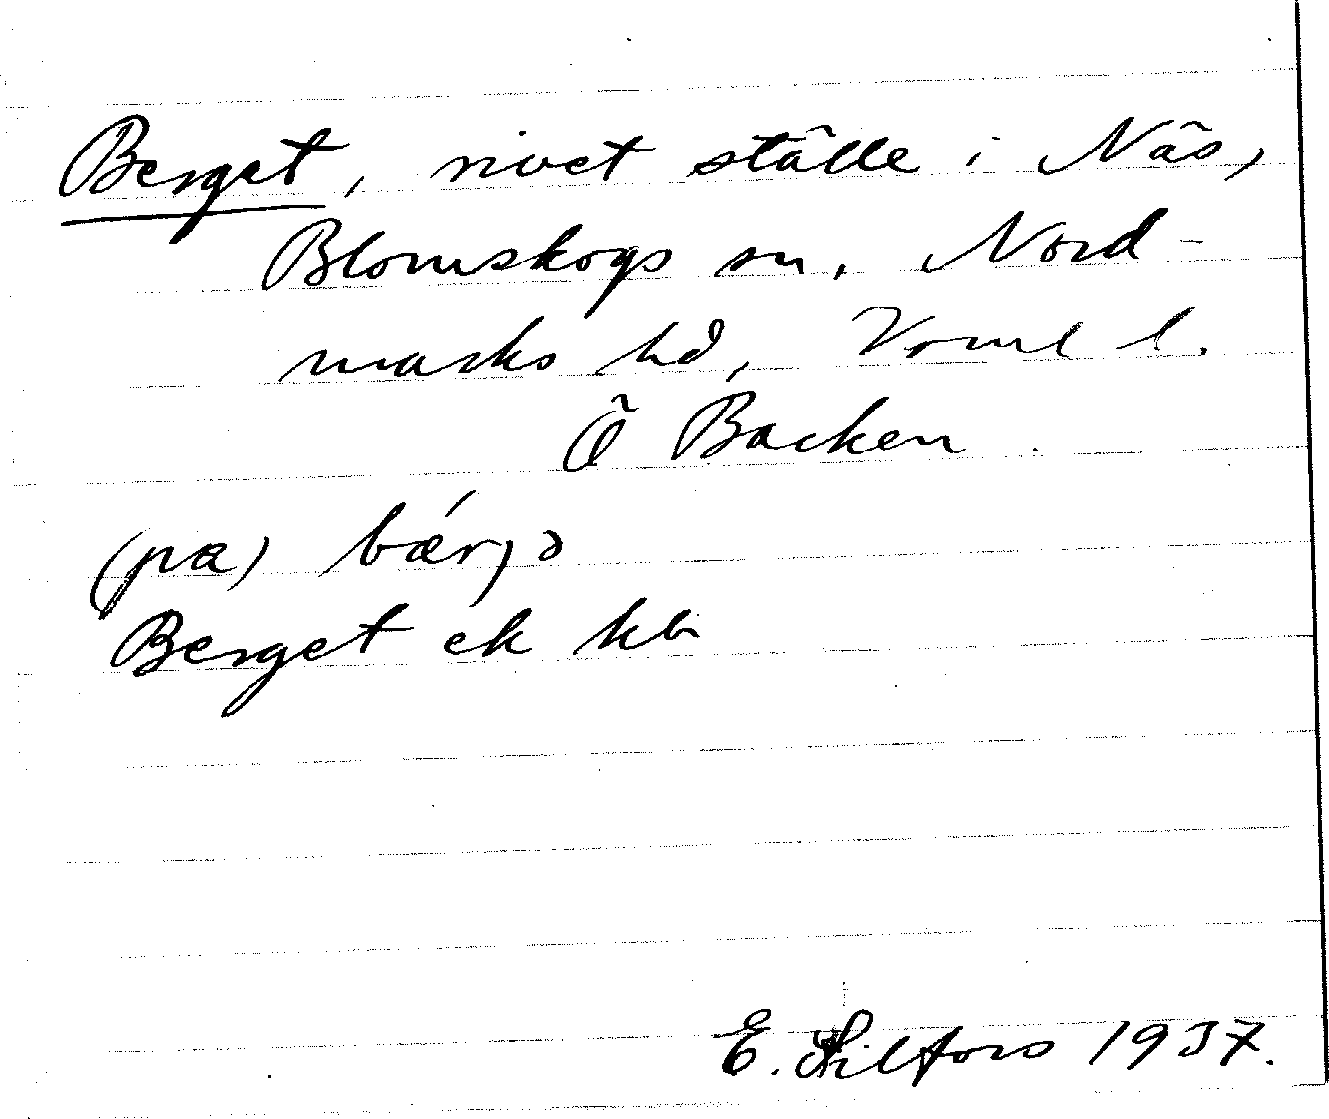 Berget, rivet ställe i Näs,
Blomskogs sn, Nord-
marks hd, Vrml l.
Ö Backen
(pæ) bǽrjə
Berget ek kb
E. Silfors 1937.